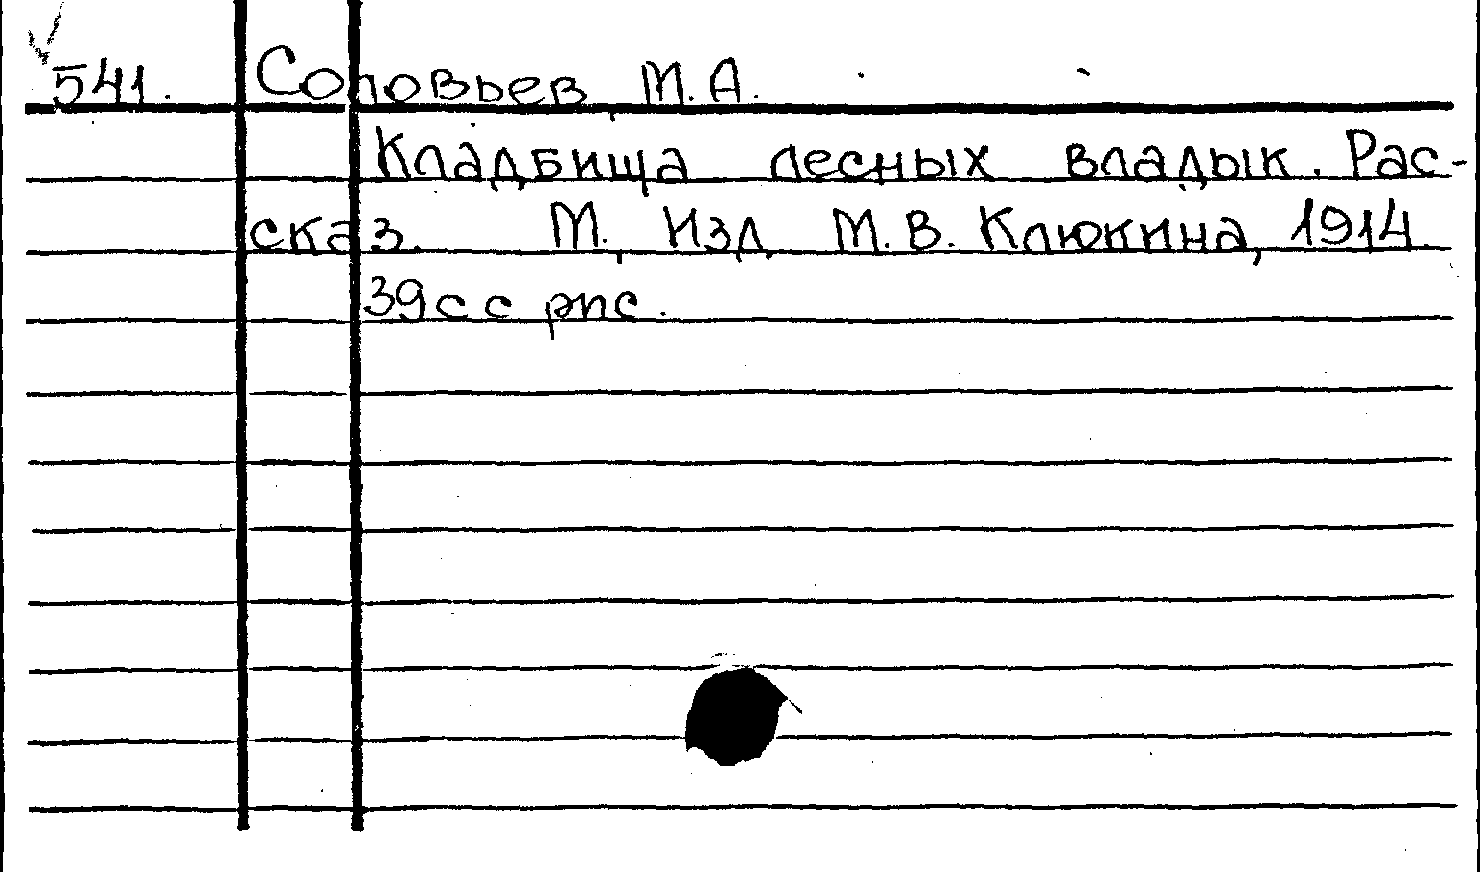 541. Соловьев, М.А.
Кладбища лесных владык. Рас-
сказ. М., Изд. М.В. Клюкина, 1914.
39 с с рис.